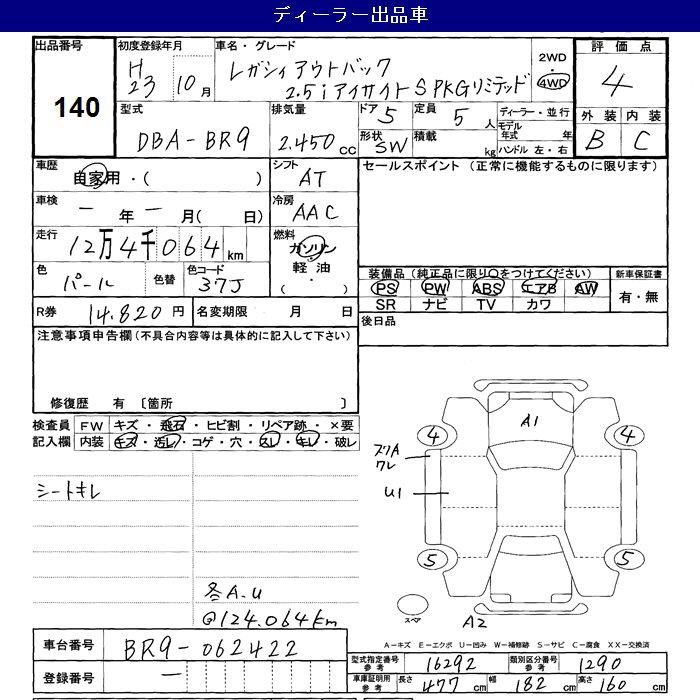 ディーラー出品車
出品番号 140
初度登録年月 H23 10月
車名・グレード レガシィアウトバック 2.5i アイサイト S PKGリミテッド
2WD・4WD
評価点 4
型式 DBA-BR9
排気量 2.450 cc
ドア 5
形状 SW
定員 5 人
積載 kg
ディーラー・並行
モデル年式 年
ハンドル 左・右
外装 B
内装 C
車歴 自家用・( )
シフト AT
セールスポイント (正常に機能するものに限ります)
車検 ー年ー月( 日)
冷房 AAC
走行 12万4千064km
燃料 ガソリン 軽油 ( ・ )
色 パール
色替
色コード 37J
装備品(純正品に限り○をつけてください)
新車保証書 有・無
PS PW ABS エアB AW
SR ナビ TV カワ
R券 14.820円
名変期限 月 日
後日品
注意事項申告欄(不具合内容等は具体的に記入して下さい)
修復歴 有 〔箇所 〕
検査員記入欄
FW キズ・飛石・ヒビ割・リペア跡・×要
内装 キズ・汚レ・コゲ・穴・スレ・キレ・破レ
シートキレ
A1
4
4
ワレ
U1
5
5
スペア
A2
A.U
@124.064km
車台番号 BR9-062422
登録番号 ー
A-キズ E-エクボ U-凹み W-補修跡 S-サビ C-腐食 XX-交換済
型式指定番号 参考 16292
類別区分番号 参考 1290
車庫証明用 参考 長さ 477cm 幅 182cm 高さ 160cm